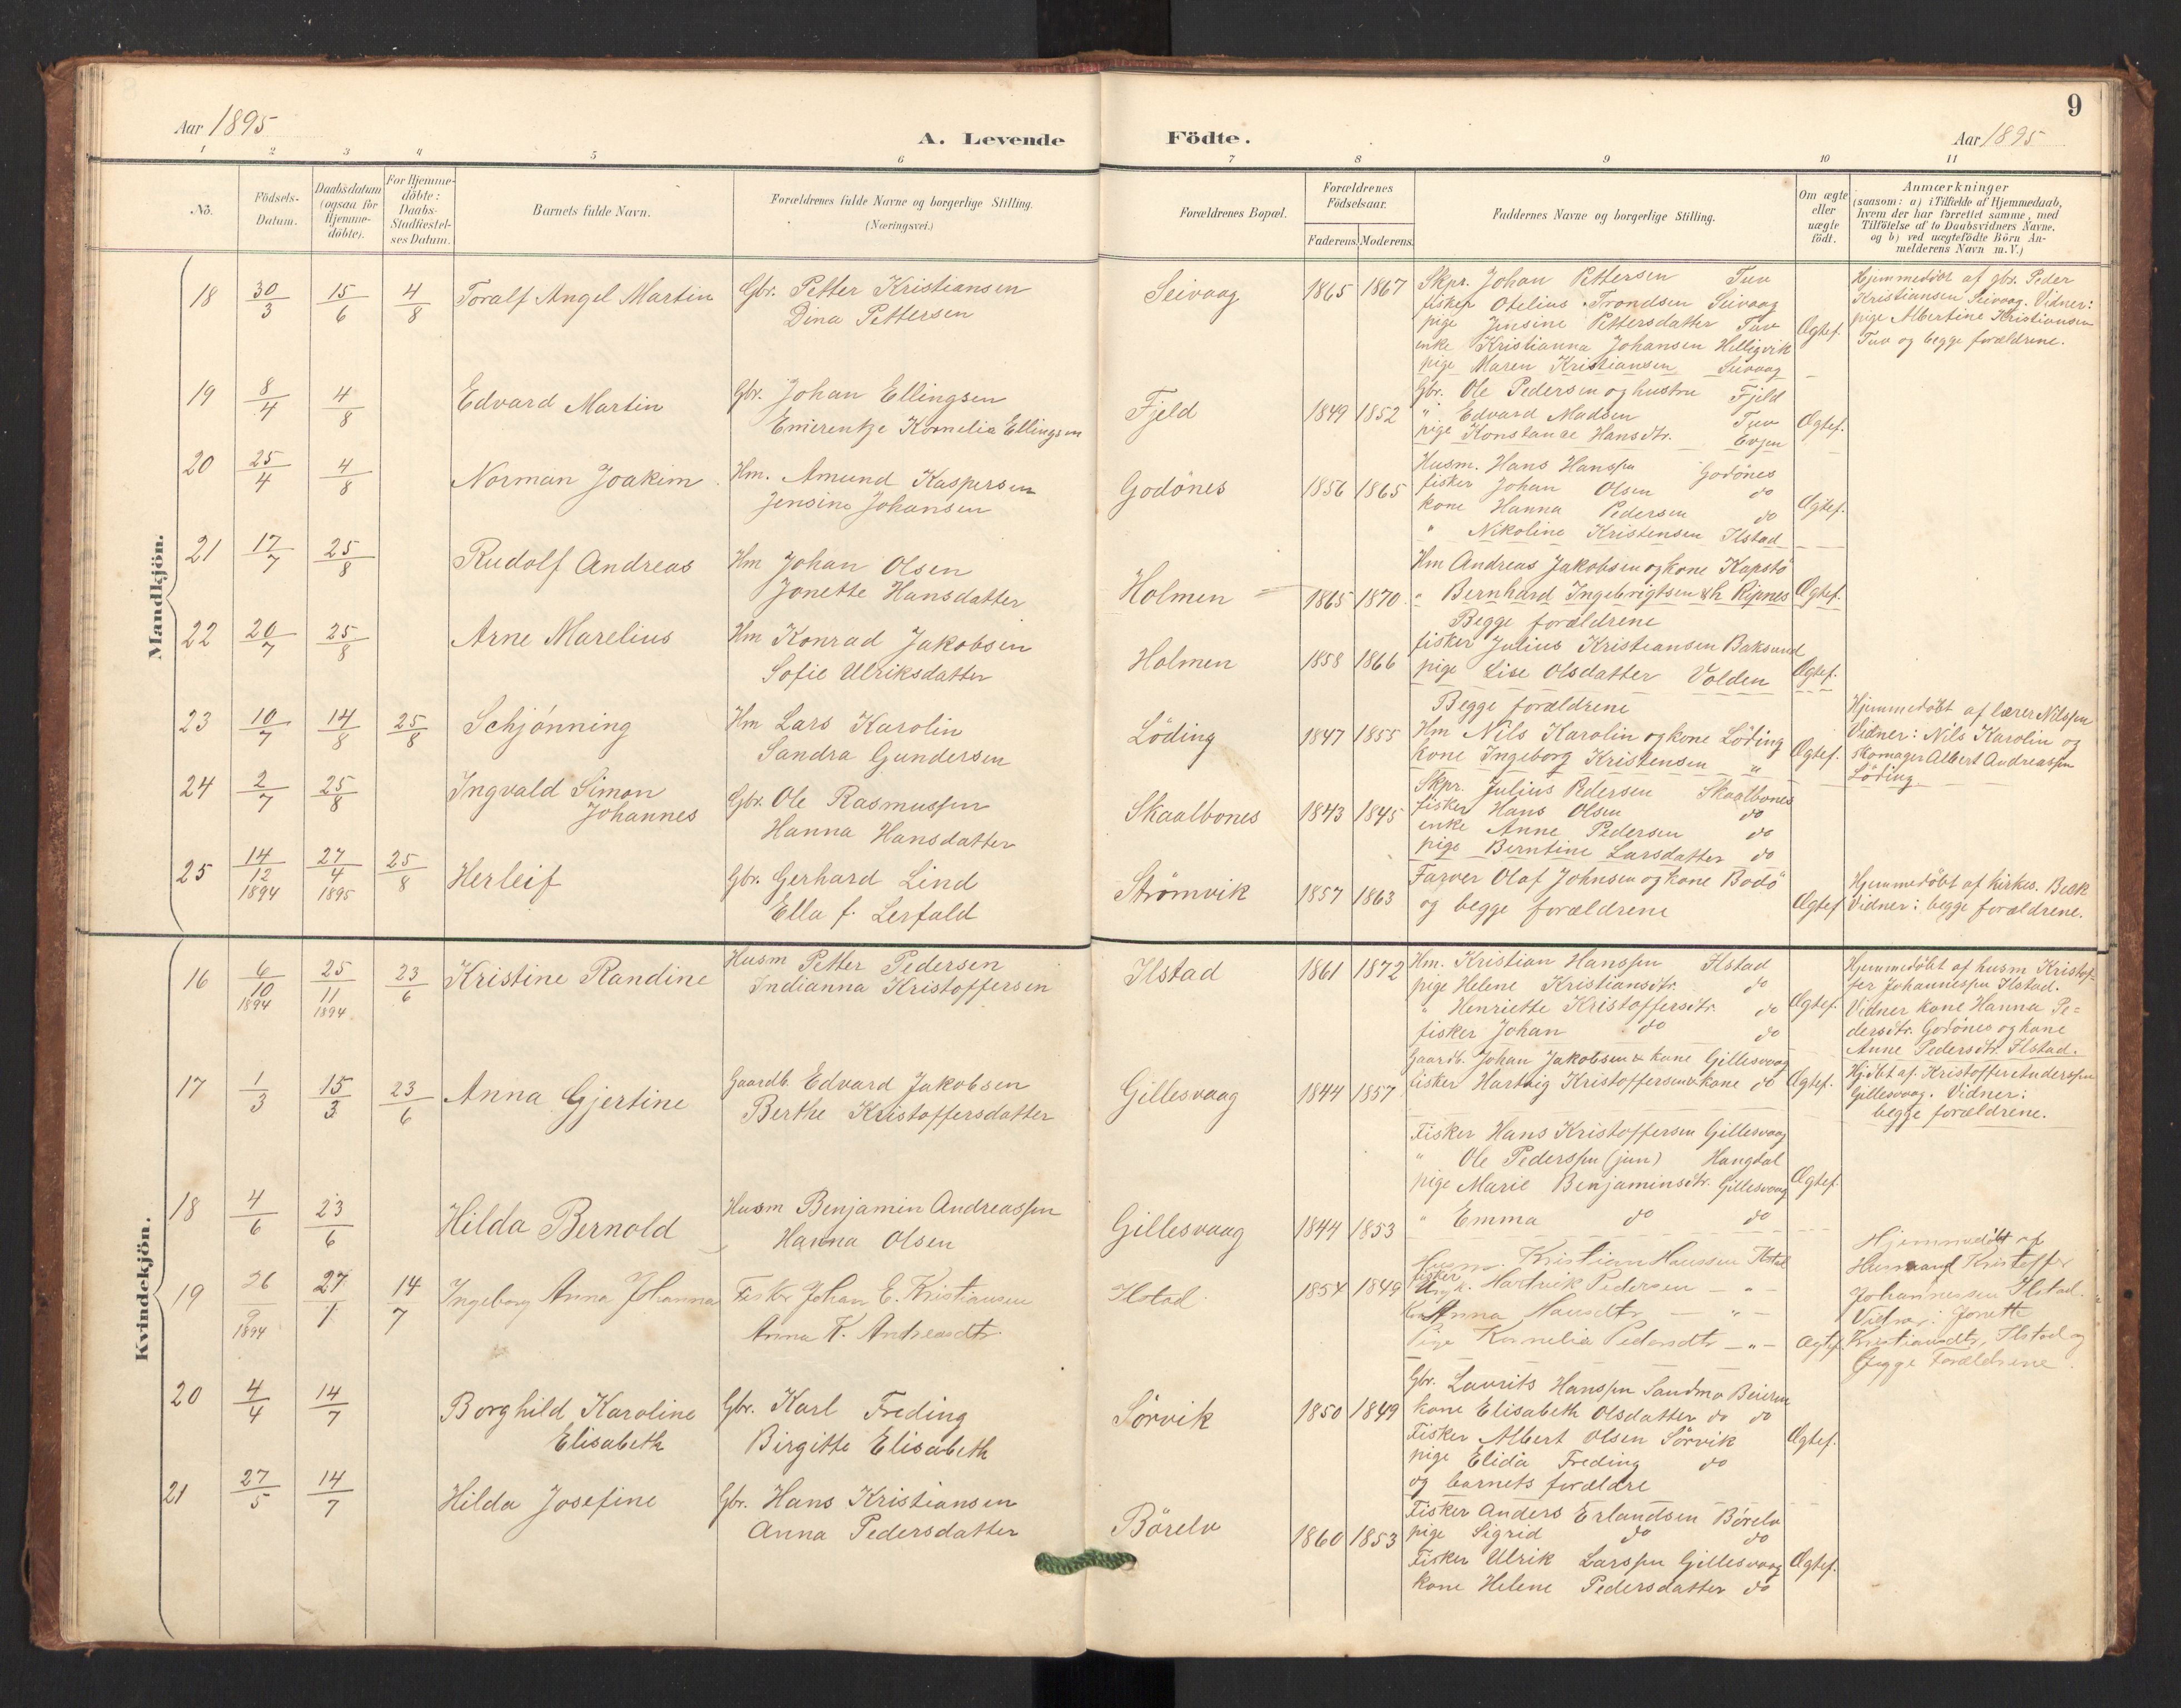 9
Aar 1895
A. Levende Födte.
Aar 1895
1 2 3 4 5 6 7 8 9 10 11
No.
Födsels-Datum.
Daabsdatum (ogsaa for Hjemme-döbte).
For Hjemme-döbte: Daabs-Stadfæstel-ses Datum.
Barnets fulde Navn.
Forældrenes fulde Navne og borgerlige Stilling. (Næringsvei.)
Forældrenes Bopæl.
Forældrenes Födselsaar.
Faderens. Moderens.
Faddernes Navne og borgerlige Stilling.
Om ægte eller uægte födt.
Anmærkninger
(saasom: a) i Tilfælde af Hjemmedaab,
hvem der har forrettet samme, med
Tilföielse af to Daabsvidners Navne,
og b) ved uægtefödte Börn An-
melderens Navn m.V.)
Mandkjön.
18 30/3 15/6 4/8 Toralf Angel Martin
Gbr. Petter Kristiansen
Dina Pettersen
Seivaag 1865 1867
Skpr. Johan Pettersen Tuv
fisker Otelius Trondsen Seivaag
pige Jensine Pettersdatter Tuv
enke Kristianna Johansen Helligvik
pige Maren Kristiansen Seivaag
Ægtef.
Hjemmedöbt af gbr. Peder
Kristiansen Seivaag. Vidner:
pige Albertine Kristiansen
Tuv og begge forældrene.
19 8/4 4/8 Edvard Martin
Gbr. Johan Ellingsen
Emerentze Kornelia Ellingsen
Fjeld 1849 1852
Gbr. Ole Pedersen og hustru Fjeld
" Edvard Madsen Tuv
pige Konstance Hansdtr. Evjen
Ægtef.
20 25/4 4/8 Norman Joakim
Hm. Amund Kaspersen
Jensine Johansen
Godönes 1856 1865
Husm. Hans Hanssen Godönes
fisker Johan Olsen do
kone Hanna Pedersen do
" Nikoline Kristensen Ilstad
Ægtef.
21 17/7 25/8 Rudolf Andreas
Hm Johan Olsen
Jonette Hansdatter
Holmen 1865 1870
Hm Andreas Jakobsen og kone Kapstö
" Bernhard Ingebrigtsen & h Ripnes
Begge forældrene
Ægtef.
22 20/7 25/8 Arne Marelius
Hm Konrad Jakobsen
Sofie Ulriksdatter
Holmen 1858 1866
fisker Julius Kristiansen Baksund
pige Lise Olsdatter Volden
Begge forældrene
Ægtef.
23 10/7 14/8 25/8 Schjönning
Hm Lars Karolin
Sandra Gundersen
Löding 1847 1855
Hm Nils Karolin og kone Löding
kone Ingeborg Kristensen "
Ægtef.
Hjemmedöbt af lærer Nilssen
Vidner: Nils Karolin og
skomager Albert Andreassen
Löding
24 2/7 25/8 Ingvald Simon
Johannes
Gbr. Ole Rasmussen
Hanna Hansdatter
Skaalbones 1843 1845
Skpr. Julius Pedersen Skaalbones
fisker Hans Olsen do
enke Anne Pedersen do
pige Berntine Larsdatter do
25 14/12 1894 27/4 1895 25/8 Herleif
Gbr. Gerhard Lind
Ella f. Lerfald
Strömvik 1857 1863
Farver Olaf Johnsen og kone Bodö
og begge forældrene
Ægtef
Hjemmedöbt af kirkes. Bæk
Vidner: begge forældrene.
Kvindekjön.
16 6/10 1894 25/11 1894 23/6 Kristine Randine
Husm Petter Pedersen
Indianna Kristoffersen
Ilstad 1861 1872
Hm. Kristian Hanssen Ilstad
pige Helene Kristiansdtr. do
" Henriette Kristoffersdtr. do
fisker Johan do do
Ægtef.
Hjemmedöbt af husm Kristof-
fer Johannessen Ilstad.
Vidner kone Hanna Pe-
dersdtr. Godönes og kone
Anne Pedersdtr. Ilstad.
17 1/3 15/3 23/6 Anna Gjertine
Gaardb. Edvard Jakobsen
Berthe Kristoffersdatter
Gillesvaag 1844 1857
Gaardb. Johan Jakobsen & kone Gillesvaag
fisker Hartvig Kristoffersen & kone do
Ægtef.
Hjdöbt af Kristoffer Anderssen
Gillesvaag. Vidner:
begge forældrene.
18 4/6 23/6 Hilda Bernold
Husm Benjamin Andreassen
Hanna Olsen
Gillesvaag 1844 1853
Fisker Hans Kristoffersen Gillesvaag
" Ole Pederssen (jun) Hangdal
pige Marie Benjaminsdtr. Gillesvaag
" Emma do do
Ægtef.
19 26/9 1894 27/1 14/7 Ingeborg Anna Johanna
Fisker Johan E. Kristiansen
Anna K. Andreasdtr.
Ilstad 1854 1849
Husm. Kristian Hanssen Ilstad
fisker Ungk. Hartvik Pedersen — " —
Kone Anna Hansdtr — " —
Pige Kornelia Pedersdtr — " —
Ægtef
Hjemmedöbt af
Husmand Kristoffer
Johannessen Ilstad.
Vidner: Jonette
Kristiansdtr, Ilstad og
Begge Forældrene.
20 4/4 14/7 Borghild Karoline
Elisabeth
Gbr. Karl Freding
Birgitte Elisabeth
Sörvik 1850 1849
Gbr. Laurits Hanssen Sandmo Beieren
kone Elisabeth Olsdatter do do
Fisker Albert Olsen Sörvik
pige Elida Freding do
og barnets forældre
Ægtef.
21 27/5 14/7 Hilda Josefine
Gbr. Hans Kristiansen
Anna Pedersdatter
Börelv 1860 1853
Fisker Anders Erlandsen Börelv
pige Sigrid do do
Fisker Ulrik Larssen Gillesvaag
kone Helene Pedersdatter do
Ægtef.